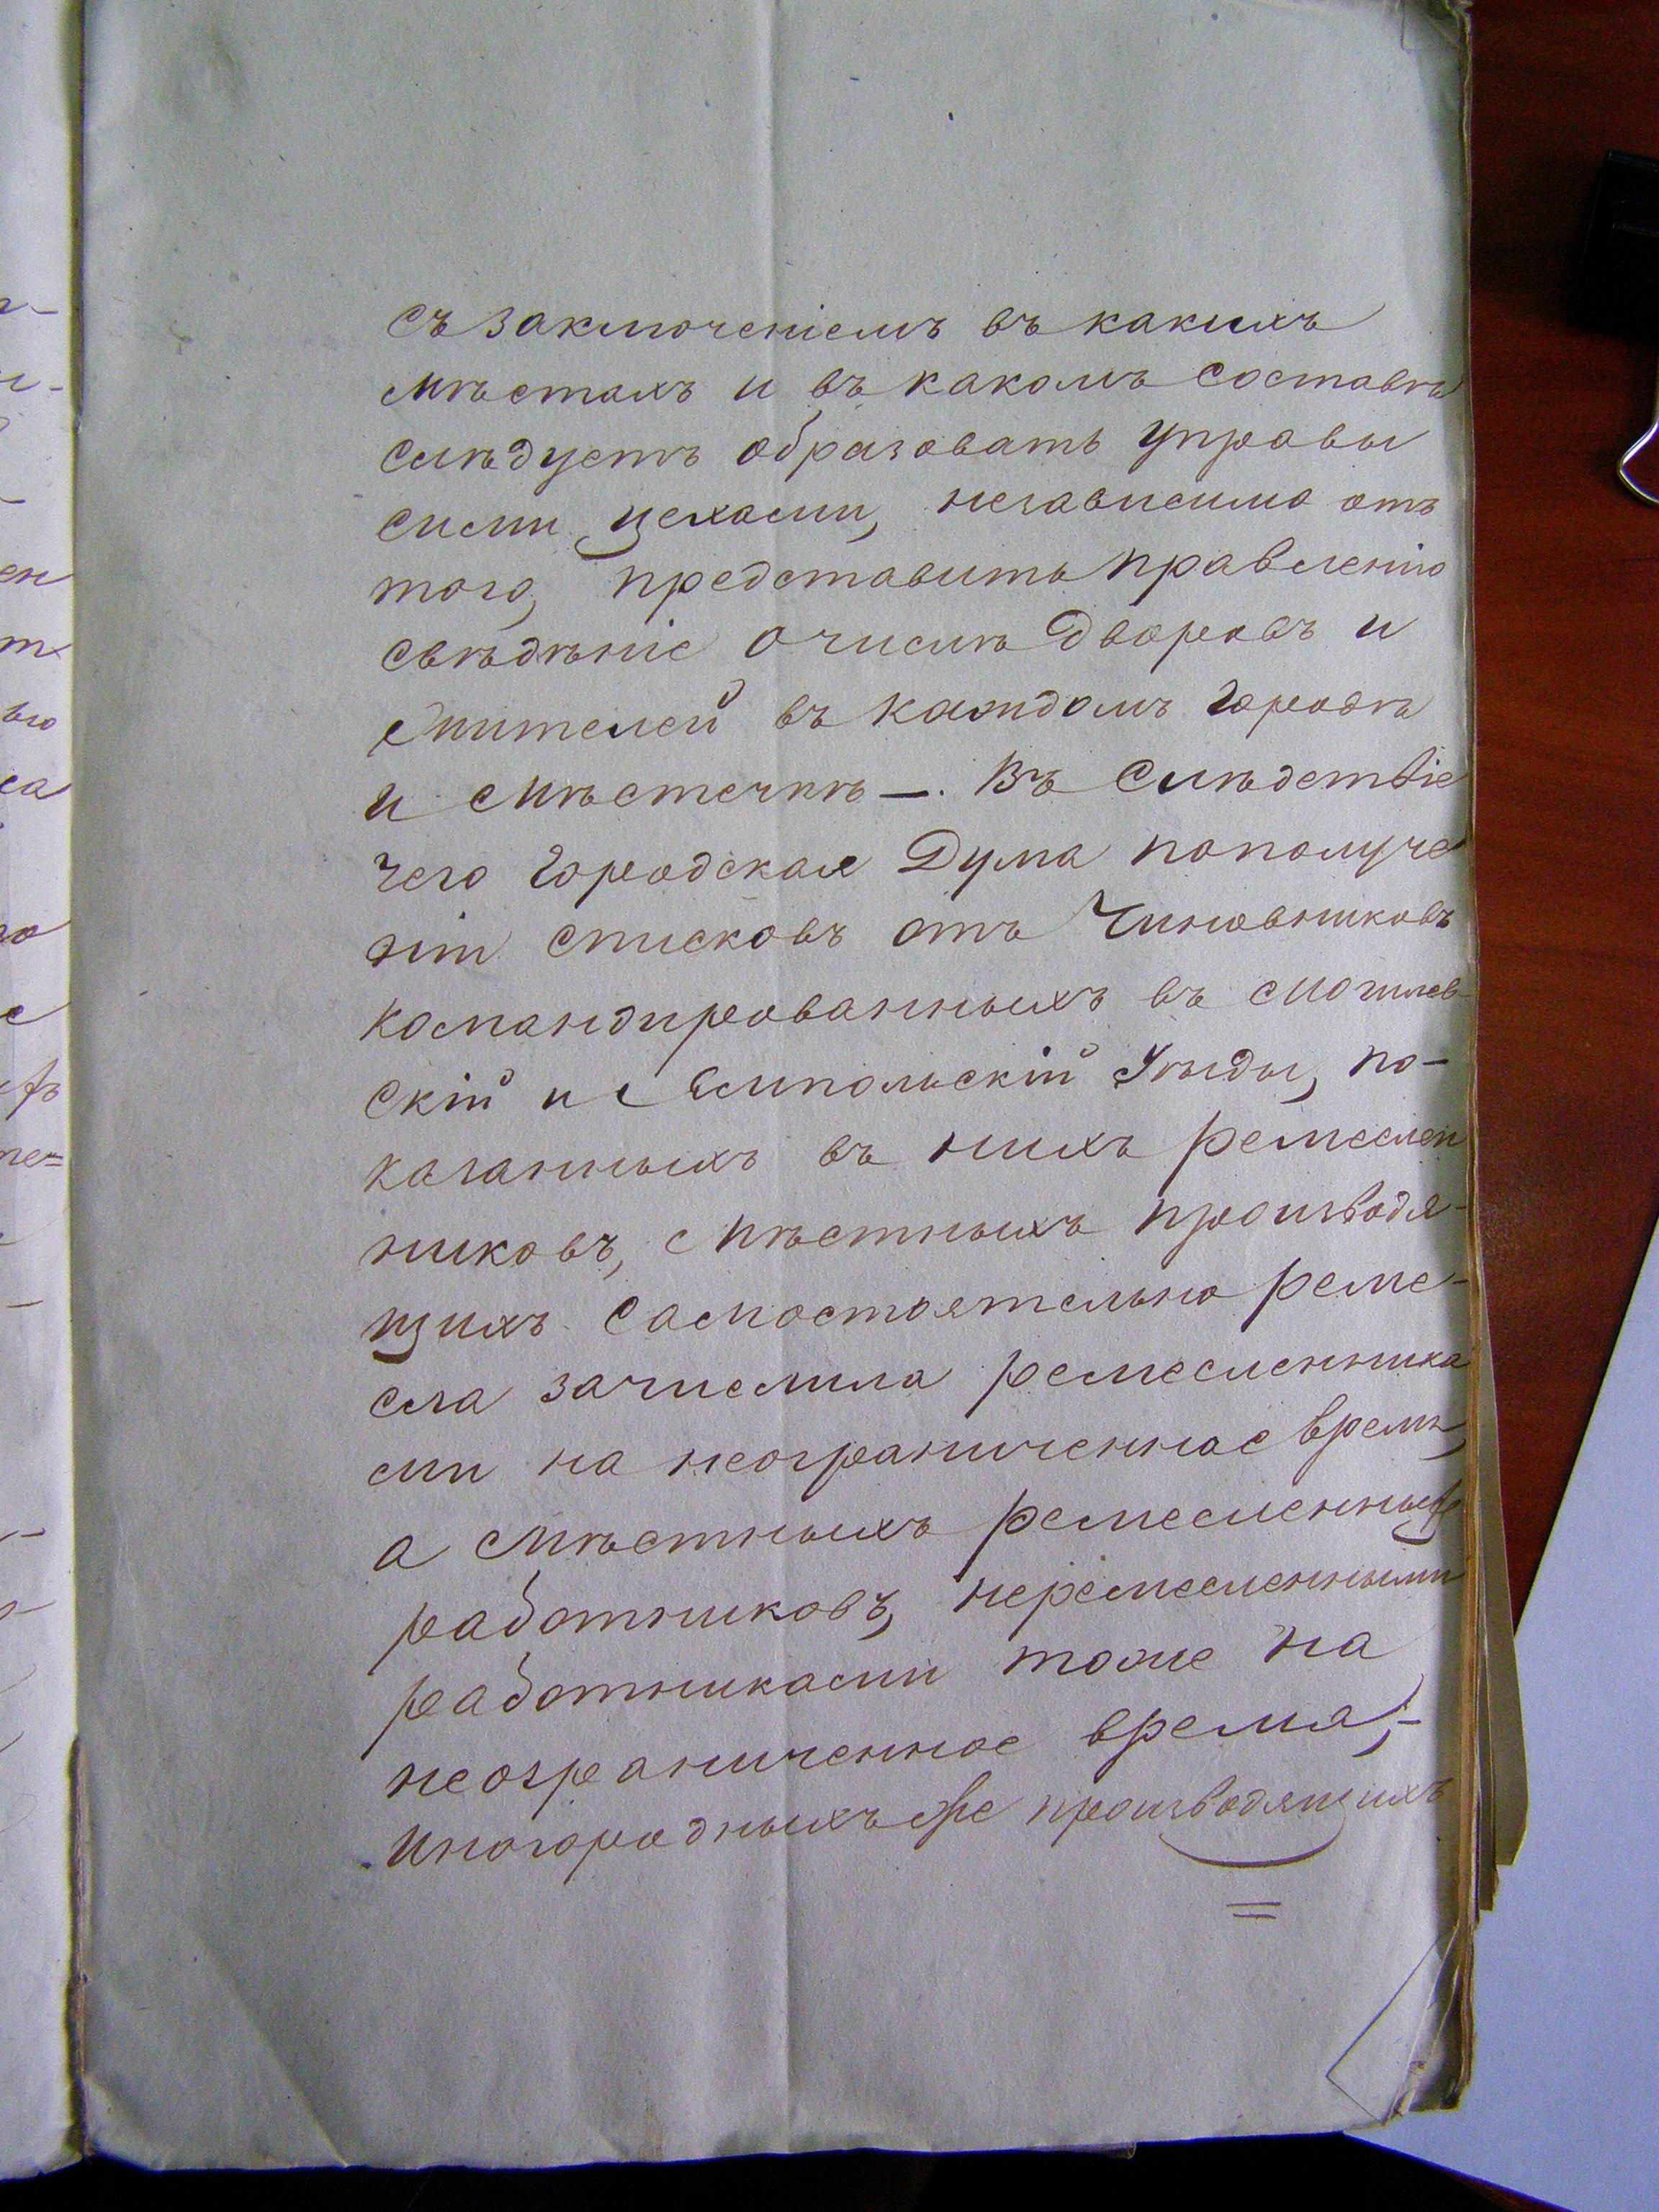 съ заключеніемъ въ какихъ
мѣстахъ и въ какомъ составѣ
слѣдуетъ образовать управы
сими цехами, независимо отъ
того, представить правленію
свѣдѣніе о числѣ дворовъ и
жителей въ каждомъ городѣ
и мѣстечкѣ —. Въ слѣдствіе
чего Городская Дума пополуче
ніи списковъ отъ Чиновниковъ
командированныхъ въ Могилев-
скій и Ямпольскій Уѣзды, по-
казанныхъ въ нихъ ремеслен
никовъ, мѣстныхъ производя-
щихъ самостоятельно реме-
сла зачислила ремесленника
ми на неограниченное время,
а мѣстныхъ ремесленныхъ
работниковъ, неремесленными
работниками тоже на
неограниченное время, -
Иногородныхъ же производящихъ
=